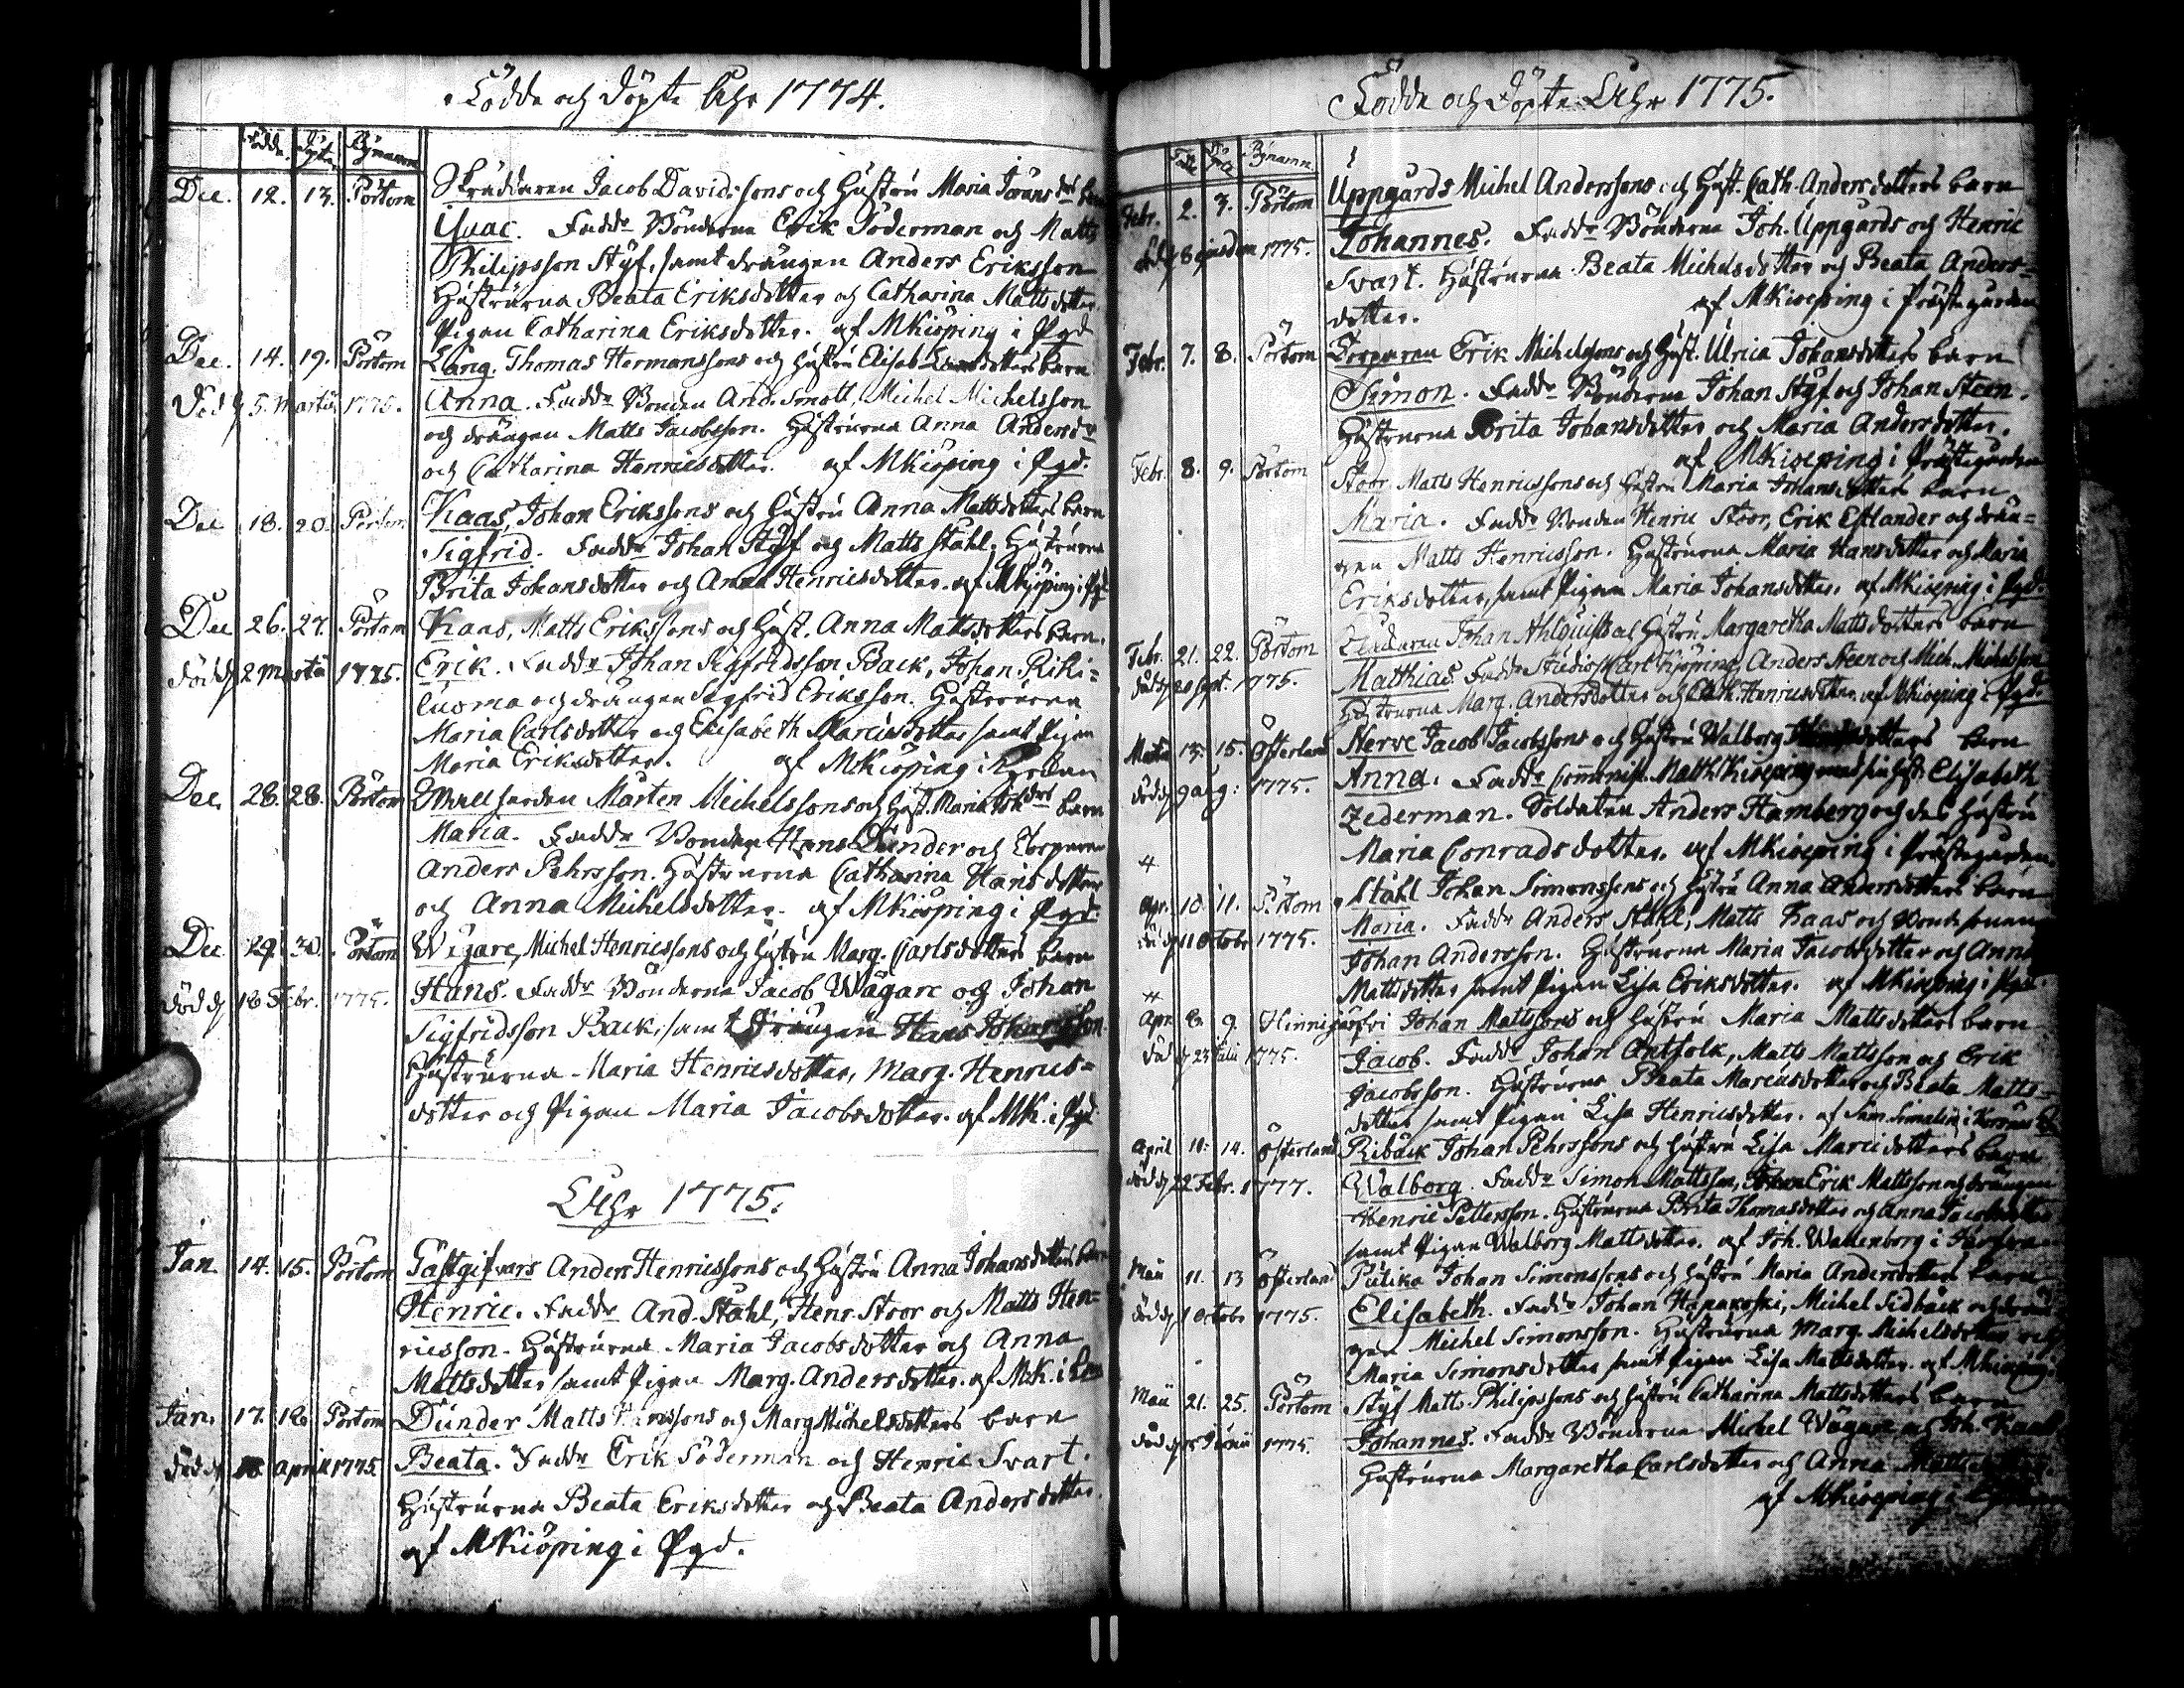 Födde och Döpte Åhr 1774.
Födde. Döpte Bynamn
Dec. 12. 13. Pörtom Skräddaren Jacob Davidssons och Hustru Maria Jörans drs barn
Isaac. Fadd. Bönderne Erik Söderman och Matts
Philipsson Styf, samt drängen Anders Eriksson
Hustrurna Beata Eriksdotter och Catharina Mattsdotter.
Pigan Catharina Eriksdotter. af MKiöping i Pgd
Dec. 14. 19. Pörtom Lång. Thomas Hermanssons och Hustru Elisab. barn
Död d 5. Martii 1775. Anna. Fadd. Bonden And. Smått, Michel Michelsson
och drängen Matts Jacobsson. Hustrurna Anna Andersdr
och Catharina Henricsdotter. af MKiöping i Pgd.
Dec 18. 20. Pörtom Kaas, Johan Erikssons och Hustru Anna Mattsdotters barn
Sigfrid. Fadd. Johan Styf och Matts Stahl, Hustrurna
Brita Johansdotter och Anna Henricsdotter. af MKjöping i Pgd
Dec 26. 27. Pörtom Kaas, Matts Erikssons och Hust. Anna Mattsdotters barn.
död d 2 Martii 1775. Erik. Fadd. Johan Sigfridsson Back, Johan Riki=
luoma och drängen Sigfrid Eriksson. Hustrurna
Maria Carlsdotter och Elisabeth Marcusdotter samt Pigan
Maria Eriksdotter. af MKiöping i
Dec. 28. 28. Pörtom Mårten Michelssons och Hust. Maria barn
Maria. Fadd. Bonden Hans Dunder och Torparen
Anders Pehrsson. Hustrurna Catharina Hansdotter
och Anna Michelsdotter. af MKiöping i Pgd.
Dec 29. 30. Pörtom Wägare, Michel Henricssons och Hustru Marg. Carlsdotters barn
död d 18 Febr. 1775. Hans. Fadd. Bönderne Jacob Wägare och Johan
Sigfridsson Back, samt drängen Hans Johansson
Hustrurna Maria Henricsdotter, Marg. Henrics=
dotter och Pigan Maria Jacobsdotter. af MK. i Pgd
Åhr 1775.
Jan 14. 15. Pörtom Gästgifvars Anders Henricssons och Hustru Anna Johansdotters barn
Henric. Fadd. And. Stahl, Henr. Stoor och Matts Hen=
ricsson. Hustrurna Maria Jacobsdotter och Anna
Mattsdotter samt Pigan Marg. Andersdotter. af MK. i
Jan. 17. 18. Pörtom Dunder Matts Hanssons och Marg Michelsdotters barn
död d April 1775 Beata. Fadd. Erik Söderman och Henric Svart.
Hustrurna Beata Eriksdotter och Beata Andersdotter.
af MKiöping i Pgd.
Födde och Döpte Åhr 1775.
Bynamn
Febr. 2. 3. Pörtom Uppgårds Michel Anderssons och Hust. Cath. Andersdotters barn
död d 8 ejusdem 1775. Johannes. Fadd. Bönderne Joh. Uppgårds och Henric
Svart. Hustrurna Beata Michelsdotter och Beata Anders=
dotter. af MKiöping i Prästegården
Febr. 7. 8. Pörtom Torparen Erik Michelssons och Hust. Ulrica Johansdotters barn
Simon. Fadd. Bönderne Johan Styf och Johan Steen.
Hustrurna Brita Johansdotter och Maria Andersdotter.
af MKiöping i Prästegården
Febr. 8. 9. Pörtom Stoor, Matts Henricssons och Hustru Maria Johansdotters barn
Maria. Fadd. Bonden Henric Stoor, Erik Estlander och drän=
gen Matts Henricsson. Hustrurna Maria Hansdotter och Maria
Eriksdotter, samt Pigan Maria Johansdotter. af MKiöping i Pgd.
Febr. 21. 22. Pörtom Johan Ahlquists och Hustru Margaretha Mattsdotters barn
död d 20 Sept. 1775. Matthias. Fadd. Studios. Carl Kjöping, Anders Steen och Mich. Michelsson
Hustrurna Marg. Andersdotter och Cath. Henricsdotter. af MKiöping i Pgd.
Martii 13. 15. Österland Nerve Jacob Jacobssons och Hustru Walborg barn
död d 9 aug: 1775. Anna. Fadd. Comminist. Matth. Kiöping med sin Hust. Elisabeth
Zederman. Soldaten Anders Hamberg och des Hustru
Maria Conradsdotter. af MKiöping i Prästegården.
Apr. 10. 11. Pörtom Stahl Johan Simonssons och Hustru Anna Andersdotters barn
död d 11 Octobr 1775. Maria. Fadd. Anders Stahl, Matts Kaas och Bondesonen
Johan Andersson. Hustrurna Maria Jacobsdotter och Anna
Mattsdotter samt Pigan Lisa Eriksdotter. af MKiöping i Pgd.
Apr 8. 9. Hinnijärfvi Johan Mattssons och Hustru Maria Mattsdotters barn
död d 23 Julii 1775. Jacob. Fadd. Johan Antfolk, Matts Mattsson och Erik
Jacobsson. Hustrurna Beata Marcusdotter och Beata Matts=
dotter samt Pigan Lisa Henricsdotter. af Sam. i
April 10: 14. Österland Ribäck Johan Pehrssons och Hustru Lisa Marcidotters barn
död d 22 Febr. 1777. Walborg. Fadd. Simon Mattsson, Erik Mattsson och drängen
Henric Pettersson. Hustrurna Brita Thomasdotter och Anna Jacobsdotter
samt Pigan Walborg Mattsdotter. af Joh. Wallenborg i
Maii 11. 13 Österland Putika Johan Simonssons och Hustru Maria Andersdotters barn
död d 1 Octobr 1775. Elisabeth. Fadd. Johan Hapakoski, Michel Sidbäck och drän
gen Michel Simonsson. Hustrurna Marg. Michelsdotter och
Maria Simonsdotter samt Pigan Lisa Mattsdotter. af MKiöping
Maii 21. 25. Pörtom Styf Matts Philipssons och Hustru Catharina Mattsdotters barn
död d 5 Junii 1775. Johannes. Fadd. Bönderne Michel Wägare och Joh. Kaas
Hustrurna Margaretha Carlsdotter och Anna Mattsdotter.
af MKiöping i